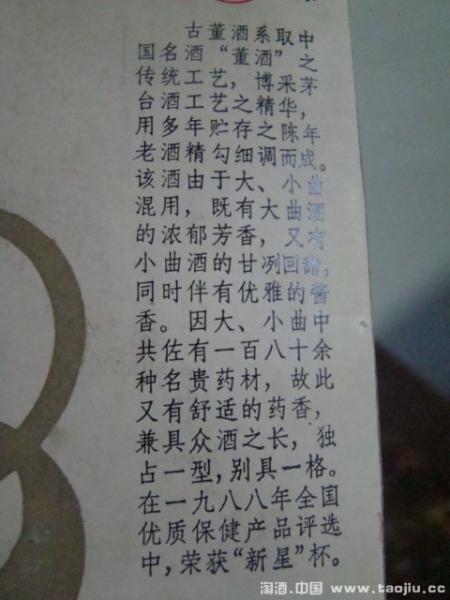 古董酒系取中
国名酒“董酒”之
传统工艺，博采茅
台酒工艺之精华，
用多年贮存之陈年
老酒精勾细调而成。
该酒由于大、小曲
混用，既有大曲酒
的浓郁芳香，又有
小曲酒的甘冽回甜，
同时伴有优雅的酱
香。因大、小曲中
共佐有一百八十余
种名贵药材，故此
又有舒适的药香，
兼具众酒之长，独
占一型，别具一格。
在一九八八年全国
优质保健产品评选
中，荣获“新星”杯。
淘酒.中国 www.taojiu.cc